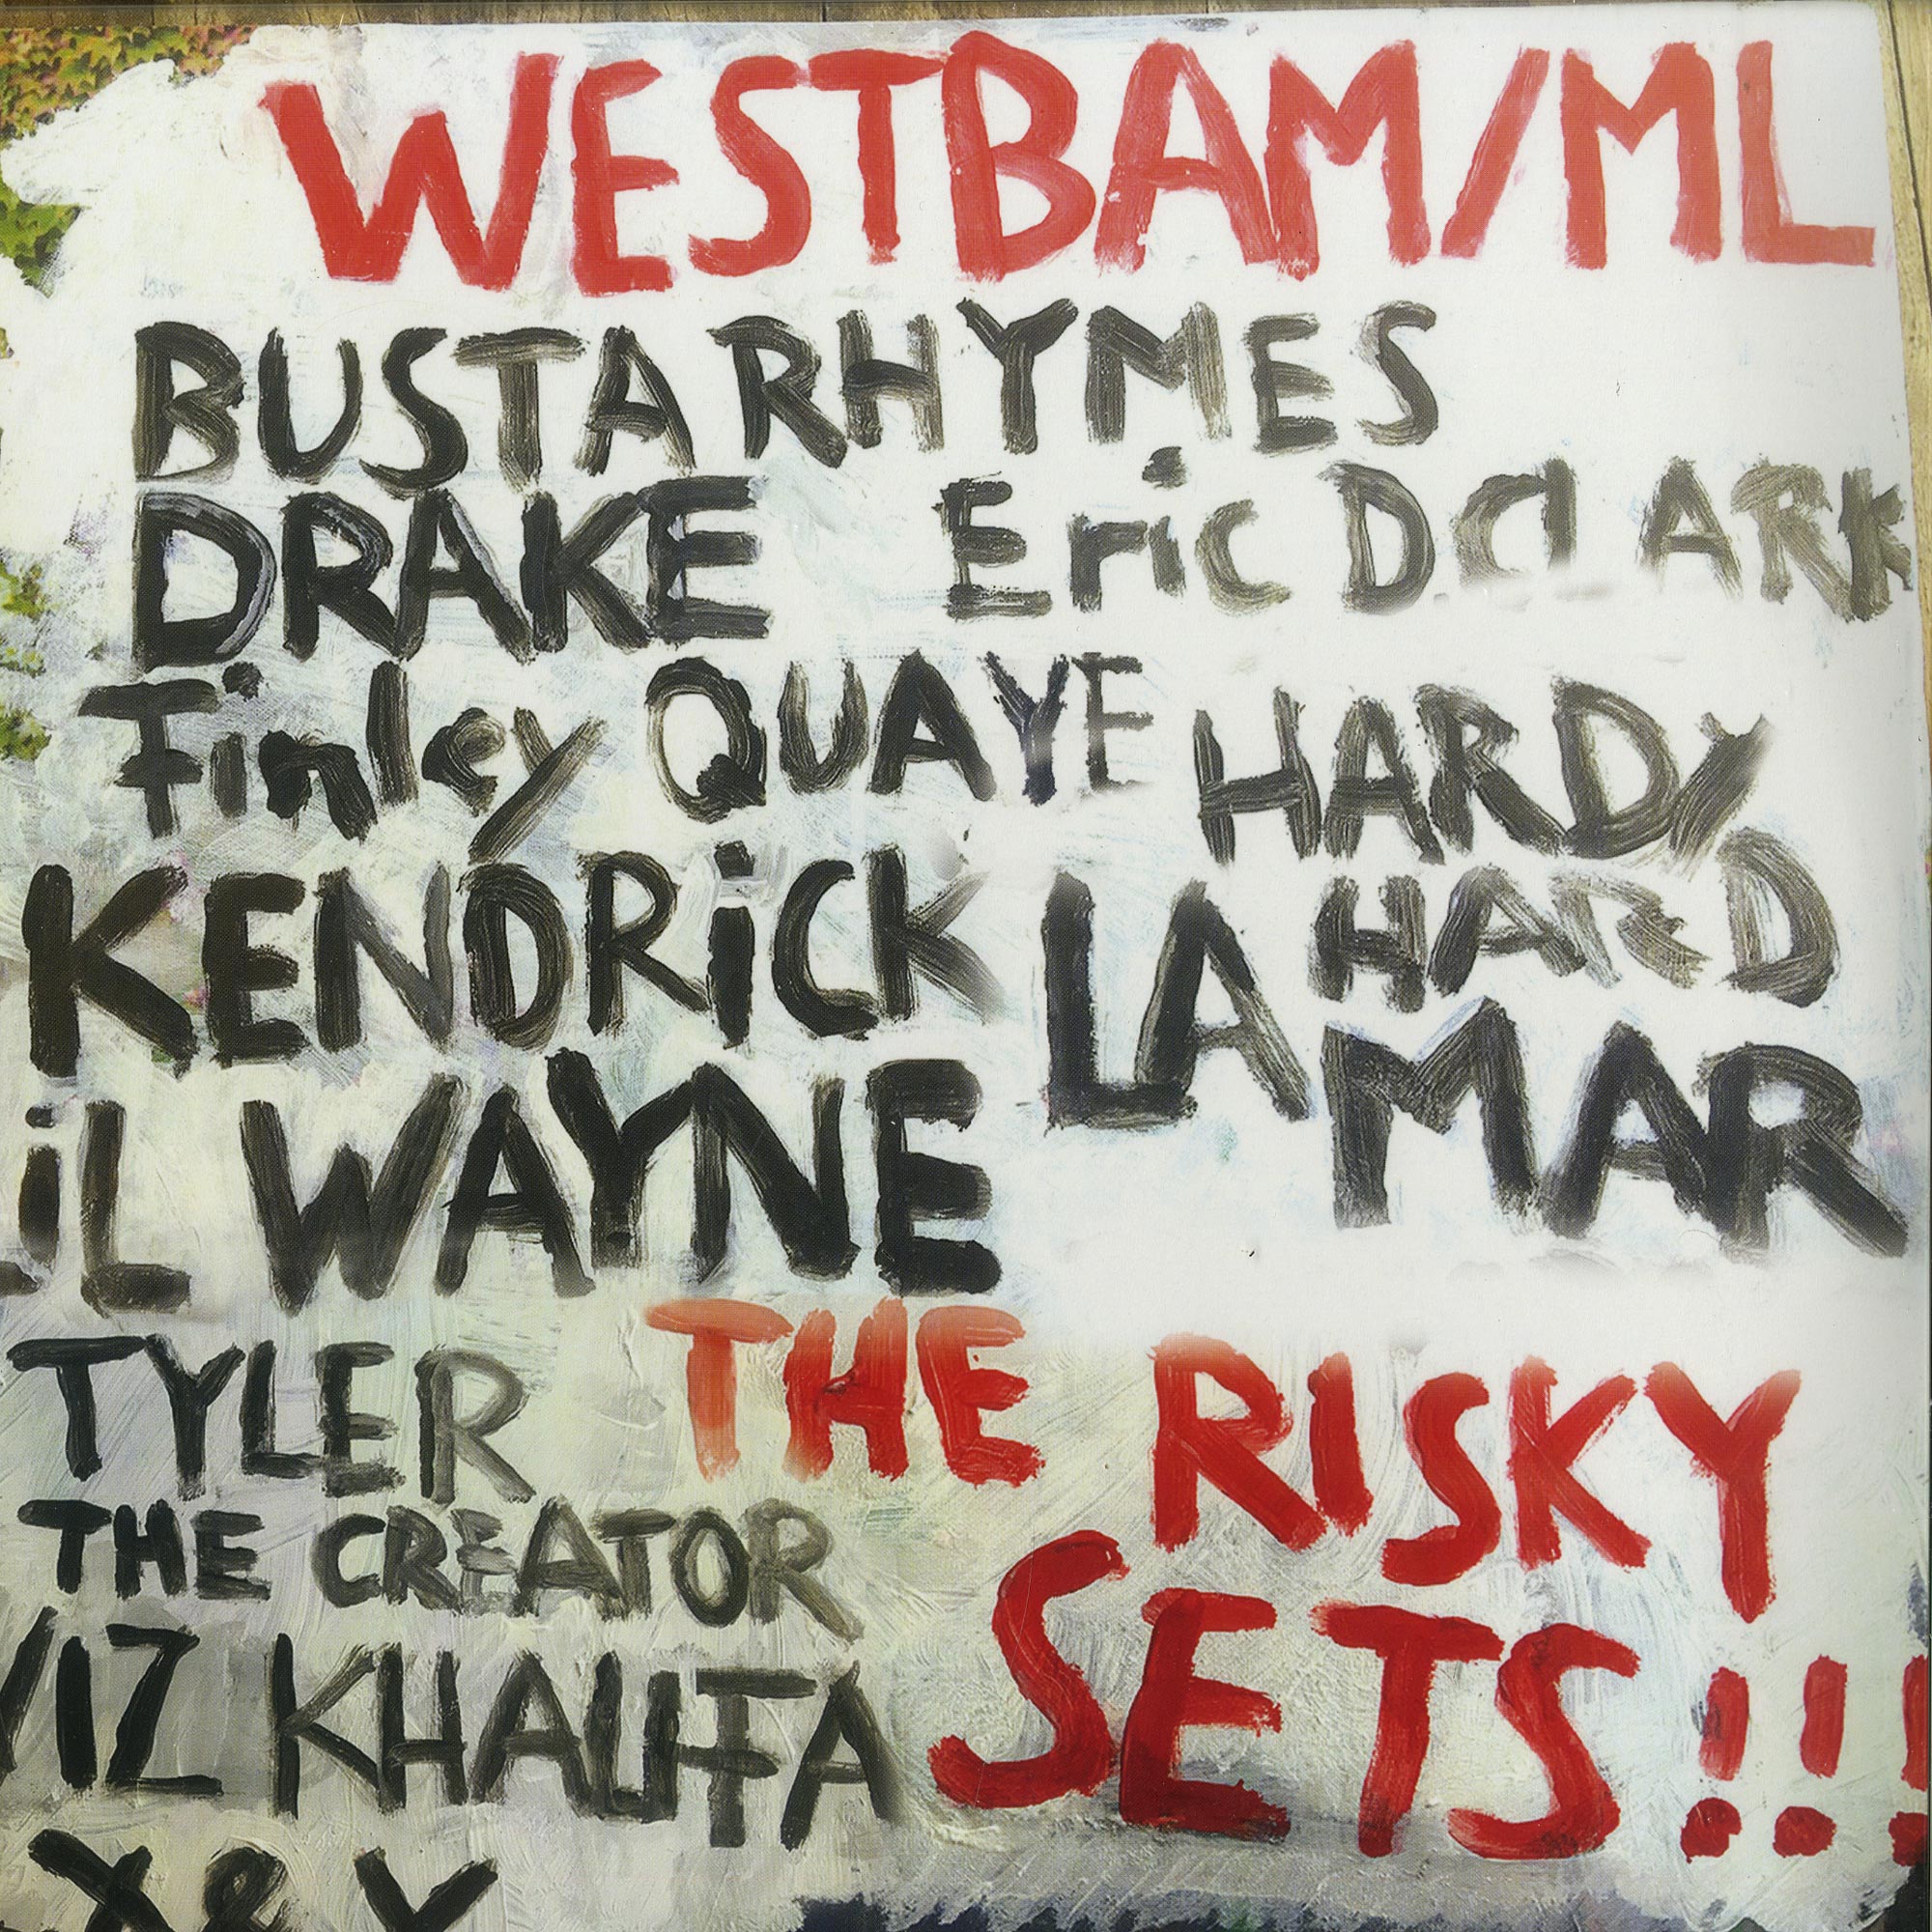 WESTBAM/ML
BUSTA RHYMES
DRAKE Eric D CLARK
Finley QUAYE HARDY
HARD
KENDRiCK LAMAR
LiL WAYNE
TYLER
THE CREATOR
WIZ KHALIFA
X & Y
THE RISKY
SETS!!!